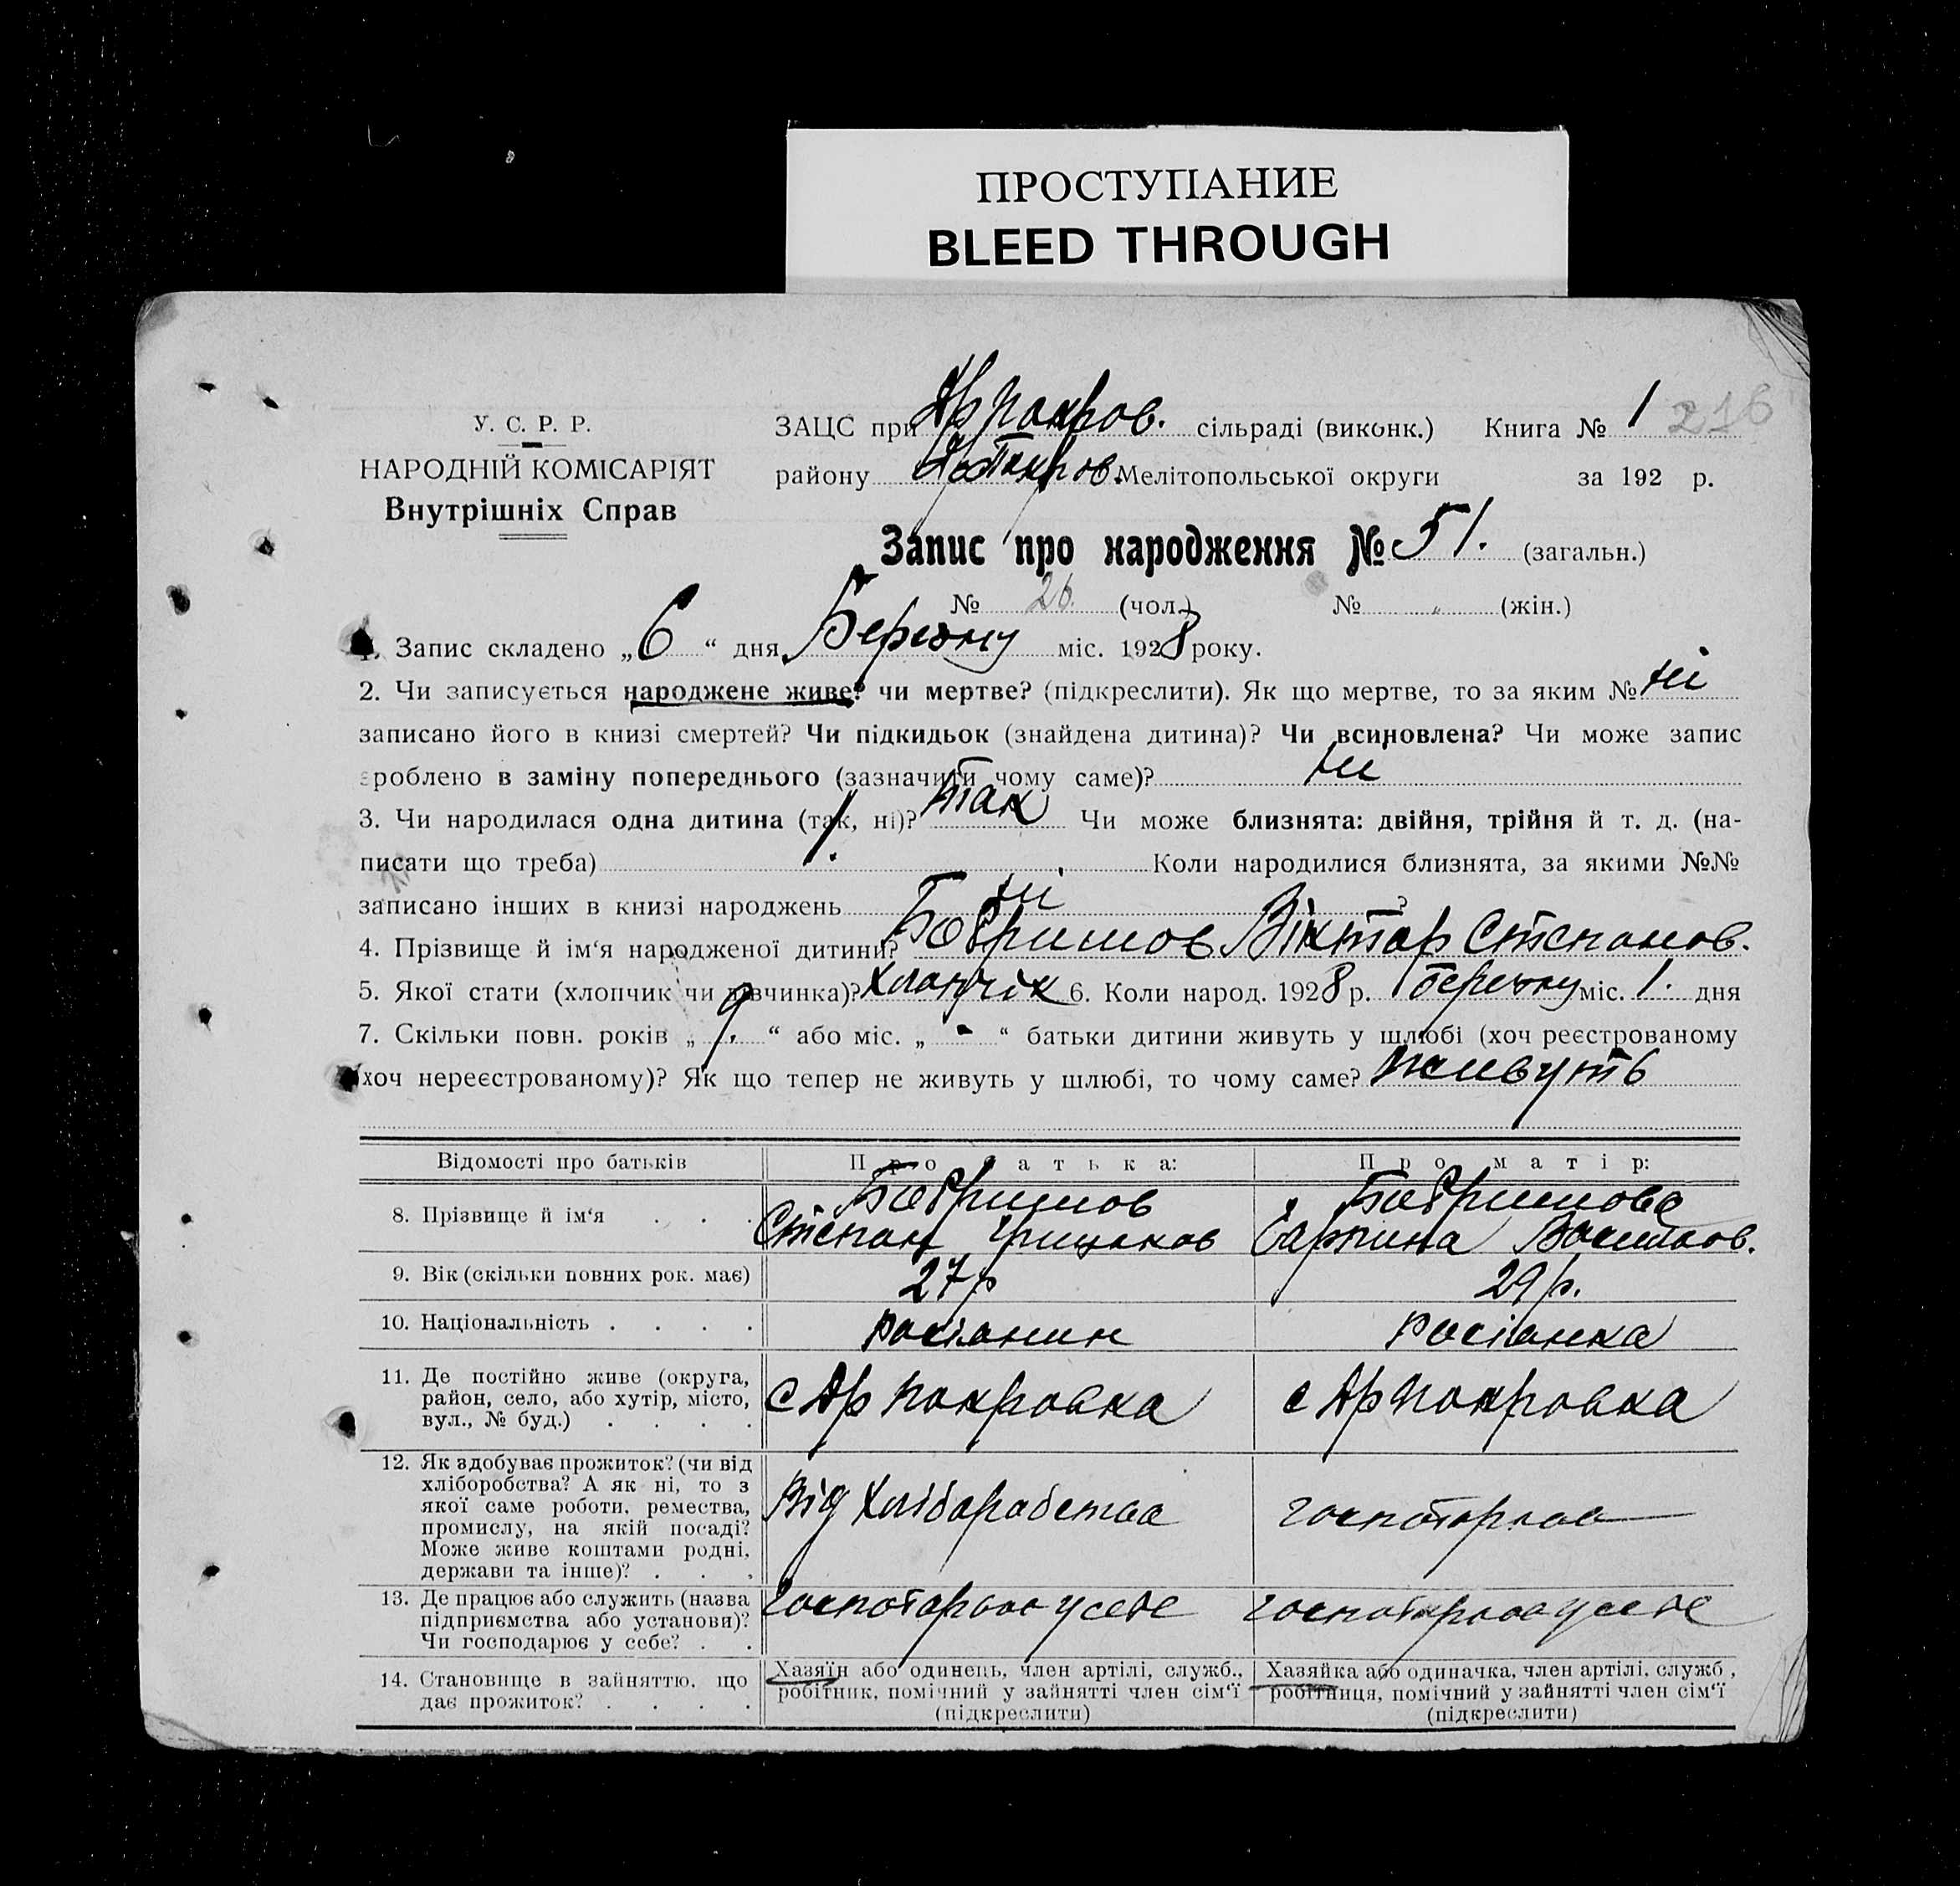 ПРОСТУПАНИЕ
BLEED THROUGH
У. С. Р. Р.
НАРОДНІЙ КОМІСАРІЯТ
Внутрішніх Справ
ЗАЦС при сільраді (виконк.) Книга № 1 216
району Мелітопольської округи за 192 р.
Запис про народження № 51. (загальн.)
№ 26. (чол.) № „ (жін.)
1. Запис складено „6“ дня Березню міс. 1928 року.
2. Чи записується народжене живе? чи мертве? (підкреслити). Як що мертве, то за яким № ні
записано його в книзі смертей? Чи підкидьок (знайдена дитина)? Чи всиновлена? Чи може запис
зроблено в заміну попереднього (зазначити чому саме)? ні
3. Чи народилася одна дитина (так, ні)? так Чи може близнята: двійня, трійня й т. д. (на-
писати що треба) Коли народилися близнята, за якими №№
записано інших в книзі народжень ні ?
4. Прізвище й ім‘я народженої дитини? Віктор Степанов.
5. Якої стати (хлопчик чи дівчинка)? хлопчік 6. Коли народ. 1928 р. березню міс. 1. дня
7. Скільки повн. років „ 9. “ або міс. „ - “ батьки дитини живуть у шлюбі (хоч реєстрованому
хоч нереєстрованому)? Як що тепер не живуть у шлюбі, то чому саме? живуть
Відомості про батьків Про батька: Про матір:
8. Прізвище й ім‘я . . .
Степан
9. Вік (скільки повних рок. має) 27 р 29 р.
10. Національність . . . . росіянин росіянка
11. Де постійно живе (округа,
район, село, або хутір, місто,
вул., № буд.) . . . .
с Ар Покровка с Ар Покровка
12. Як здобуває прожиток? (чи від
хліборобства? А як ні, то з
якої саме роботи, ремества,
промислу, на якій посаді?
Може живе коштами родні,
держави та інше)? . . .
Від хлібороботва
13. Де працює або служить (назва
підприємства або установи)?
Чи господарює у себе? . .
14. Становище в зайняттю, що
дає прожиток? . . . .
Хазяїн або одинець, член артілі, служб.,
робітник, помічний у зайнятті член сім‘ї
(підкреслити)
Хазяйка або одиначка, член артілі, служб,
робітниця, помічний у зайнятті член сім‘ї
(підкреслити)